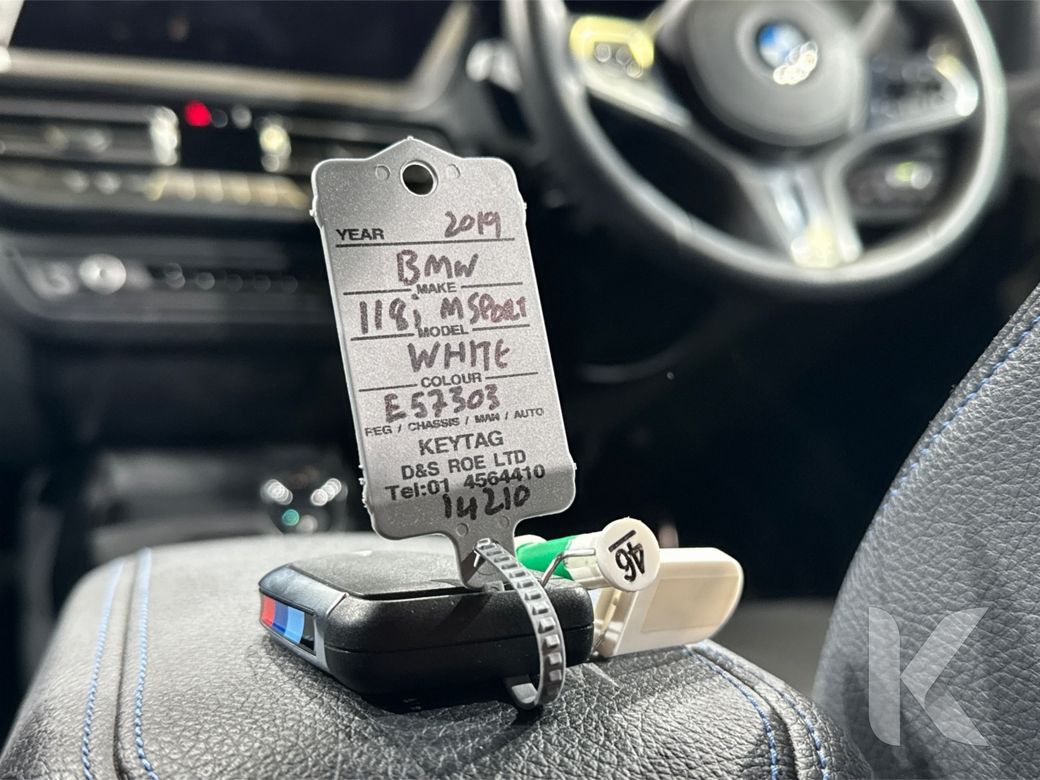 YEAR 2019
BMW
MAKE
118i M SPORT
MODEL
WHITE
COLOUR
E57303
REG / CHASSIS / MAN / AUTO
KEYTAG
D&S ROE LTD
Tel:01 4564410
14210
46
K